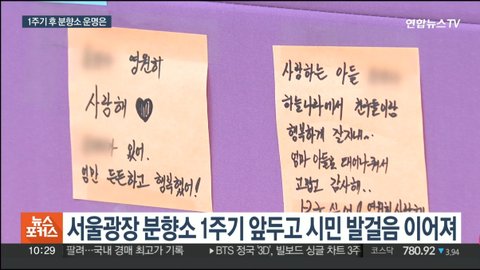 1주기 후 분향소 운명은
연합뉴스TV
영원히
사랑해
왔어.
엄만 든든하고 행복했어!
사랑하는 아들
하늘나라에서 친구들이랑
행복하게 잘지내~
엄마 아들로 태어나줘서
고맙고 감사해..
영원히 사랑해
뉴스
포커스
서울광장 분향소 1주기 앞두고 시민 발걸음 이어져
10:29
팔라…국내 경매 최고가 기록
BTS 정국 '3D', 빌보드 싱글 차트 3주
코스닥
790.92
▼3.94